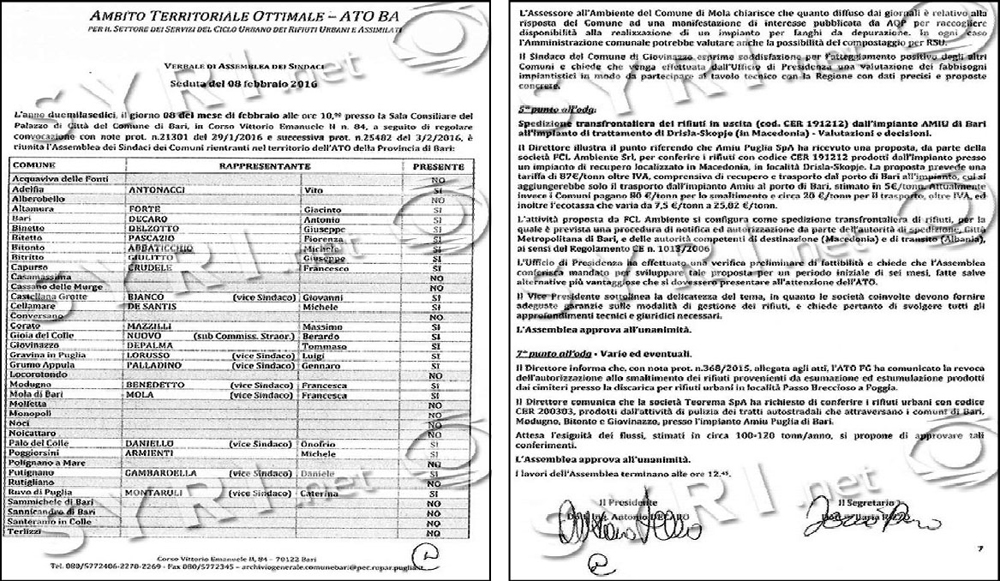 AMBITO TERRITORIALE OTTIMALE – ATO BA
PER IL SETTORE DEI SERVIZI DEL CICLO URBANO DEI RIFIUTI URBANI E ASSIMILATI
VERBALE DI ASSEMBLEA DEI SINDACI
Seduta del 08 febbraio 2016
L'anno duemilasedici, il giorno 08 del mese di febbraio alle ore 10,30 presso la Sala Consiliare del
Palazzo di Città del Comune di Bari, in Corso Vittorio Emanuele II n. 84, a seguito di regolare
convocazione con note prot. n.21301 del 29/1/2016 e successiva prot. n.25482 del 3/2/2016, è
riunita l'Assemblea dei Sindaci dei Comuni rientranti nel territorio dell'ATO della Provincia di Bari:
COMUNE RAPPRESENTANTE PRESENTE
Acquaviva delle Fonti NO
Adelfia ANTONACCI Vito SI
Alberobello NO
Altamura FORTE Giacinto SI
Bari DECARO Antonio SI
Binetto DELZOTTO Giuseppe SI
Bitetto PASCAZIO Fiorenza SI
Bitonto ABBATICCHIO Michele SI
Bitritto GIULITTO Giuseppe SI
Capurso CRUDELE Francesco SI
Casamassima NO
Cassano delle Murge NO
Castellana Grotte BIANCO (vice Sindaco) Giovanni SI
Cellamare DE SANTIS Michele SI
Conversano NO
Corato MAZZILLI Massimo SI
Gioia del Colle NUOVO (sub Commiss. Straor.) Berardo SI
Giovinazzo DEPALMA Tommaso SI
Gravina in Puglia LORUSSO (vice Sindaco) Luigi SI
Grumo Appula PALLADINO (vice Sindaco) Gennaro SI
Locorotondo NO
Modugno BENEDETTO (vice Sindaco) Francesca SI
Mola di Bari MOLA (vice Sindaco) Francesca SI
Molfetta NO
Monopoli NO
Noci NO
Noicattaro NO
Palo del Colle DANIELLO (vice Sindaco) Onofrio SI
Poggiorsini ARMIENTI Michele SI
Polignano a Mare NO
Putignano GAMBARDELLA (vice Sindaco) Daniele SI
Rutigliano NO
Ruvo di Puglia MONTARULI (vice Sindaco) Caterina SI
Sammichele di Bari NO
Sannicandro di Bari NO
Santeramo in Colle NO
Terlizzi NO
Corso Vittorio Emanuele II, 84 - 70122 Bari
Tel. 080/5772406-2270-2269 - Fax 080/5772345 – archiviogenerale.comunebari@pec.rupar.puglia.it
L'Assessore all'Ambiente del Comune di Mola chiarisce che quanto diffuso dai giornali è relativo alla
risposta del Comune ad una manifestazione di interesse pubblicata da AQP per raccogliere
disponibilità alla realizzazione di un impianto per fanghi da depurazione. In ogni caso
l'Amministrazione comunale potrebbe valutare anche la possibilità del compostaggio per RSU.
Il Sindaco del Comune di Giovinazzo esprime soddisfazione per l'atteggiamento positivo degli altri
Comuni e chiede che venga effettuata dall'Ufficio di Presidenza una valutazione dei fabbisogni
impiantistici in modo da partecipare al tavolo tecnico con la Regione con dati precisi e proposte
concrete.
5° punto all'odg:
Spedizione transfrontaliera dei rifiuti in uscita (cod. CER 191212) dall'impianto AMIU di Bari
all'impianto di trattamento di Drisla-Skopje (in Macedonia) - Valutazioni e decisioni.
Il Direttore illustra il punto riferendo che Amiu Puglia SpA ha ricevuto una proposta, da parte della
società FCL Ambiente Srl, per conferire i rifiuti con codice CER 191212 prodotti dall'impianto presso
un impianto di recupero localizzato in Macedonia, in località Drisla-Skopje. La proposta prevede una
tariffa di 87€/tonn oltre IVA, comprensiva di recupero e trasporto dal porto di Bari all'impianto, cui si
aggiungerebbe solo il trasporto dall'impianto Amiu al porto di Bari, stimato in 5€/tonn. Attualmente
invece i Comuni pagano 80 €/tonn per lo smaltimento e circa 20 €/tonn per il trasporto, oltre IVA, ed
inoltre l'ecotassa che varia da 7,5 €/tonn a 25,82 €/tonn.
L'attività proposta da FCL Ambiente si configura come spedizione transfrontaliera di rifiuti, per la
quale è prevista una procedura di notifica ed autorizzazione da parte dell'autorità di spedizione, Città
Metropolitana di Bari, e delle autorità competenti di destinazione (Macedonia) e di transito (Albania),
ai sensi del Regolamento CE n. 1013/2006
L'Ufficio di Presidenza ha effettuato una verifica preliminare di fattibilità e chiede che l'Assemblea
conferisca mandato per sviluppare tale proposta per un periodo iniziale di sei mesi, fatte salve
alternative più vantaggiose che si dovessero presentare all'attenzione dell'ATO.
Il Vice Presidente sottolinea la delicatezza del tema, in quanto le società coinvolte devono fornire
adeguate garanzie sulle modalità di gestione dei rifiuti, e chiede pertanto di svolgere tutti gli
approfondimenti tecnici e giuridici necessari.
L'Assemblea approva all'unanimità.
7° punto all'odg - Varie ed eventuali.
Il Direttore informa che, con nota prot. n.368/2015, allegata agli atti, l'ATO FG ha comunicato la revoca
dell'autorizzazione allo smaltimento dei rifiuti provenienti da esumazione ed estumulazione prodotti
dai cimiteri presso la discarica per rifiuti urbani in località Passo Breccioso a Foggia.
Il Direttore comunica che la società Teorema SpA ha richiesto di conferire i rifiuti urbani con codice
CER 200303, prodotti dall'attività di pulizia dei tratti autostradali che attraversano i comuni di Bari,
Modugno, Bitonto e Giovinazzo, presso l'impianto Amiu Puglia di Bari.
Attesa l'esiguità dei flussi, stimati in circa 100-120 tonn/anno, si propone di approvare tali
conferimenti.
L'Assemblea approva all'unanimità.
I lavori dell'Assemblea terminano alle ore 12.45.
Il Presidente Il Segretario
Antonio DECARO Ilaria
7
SYRI.net